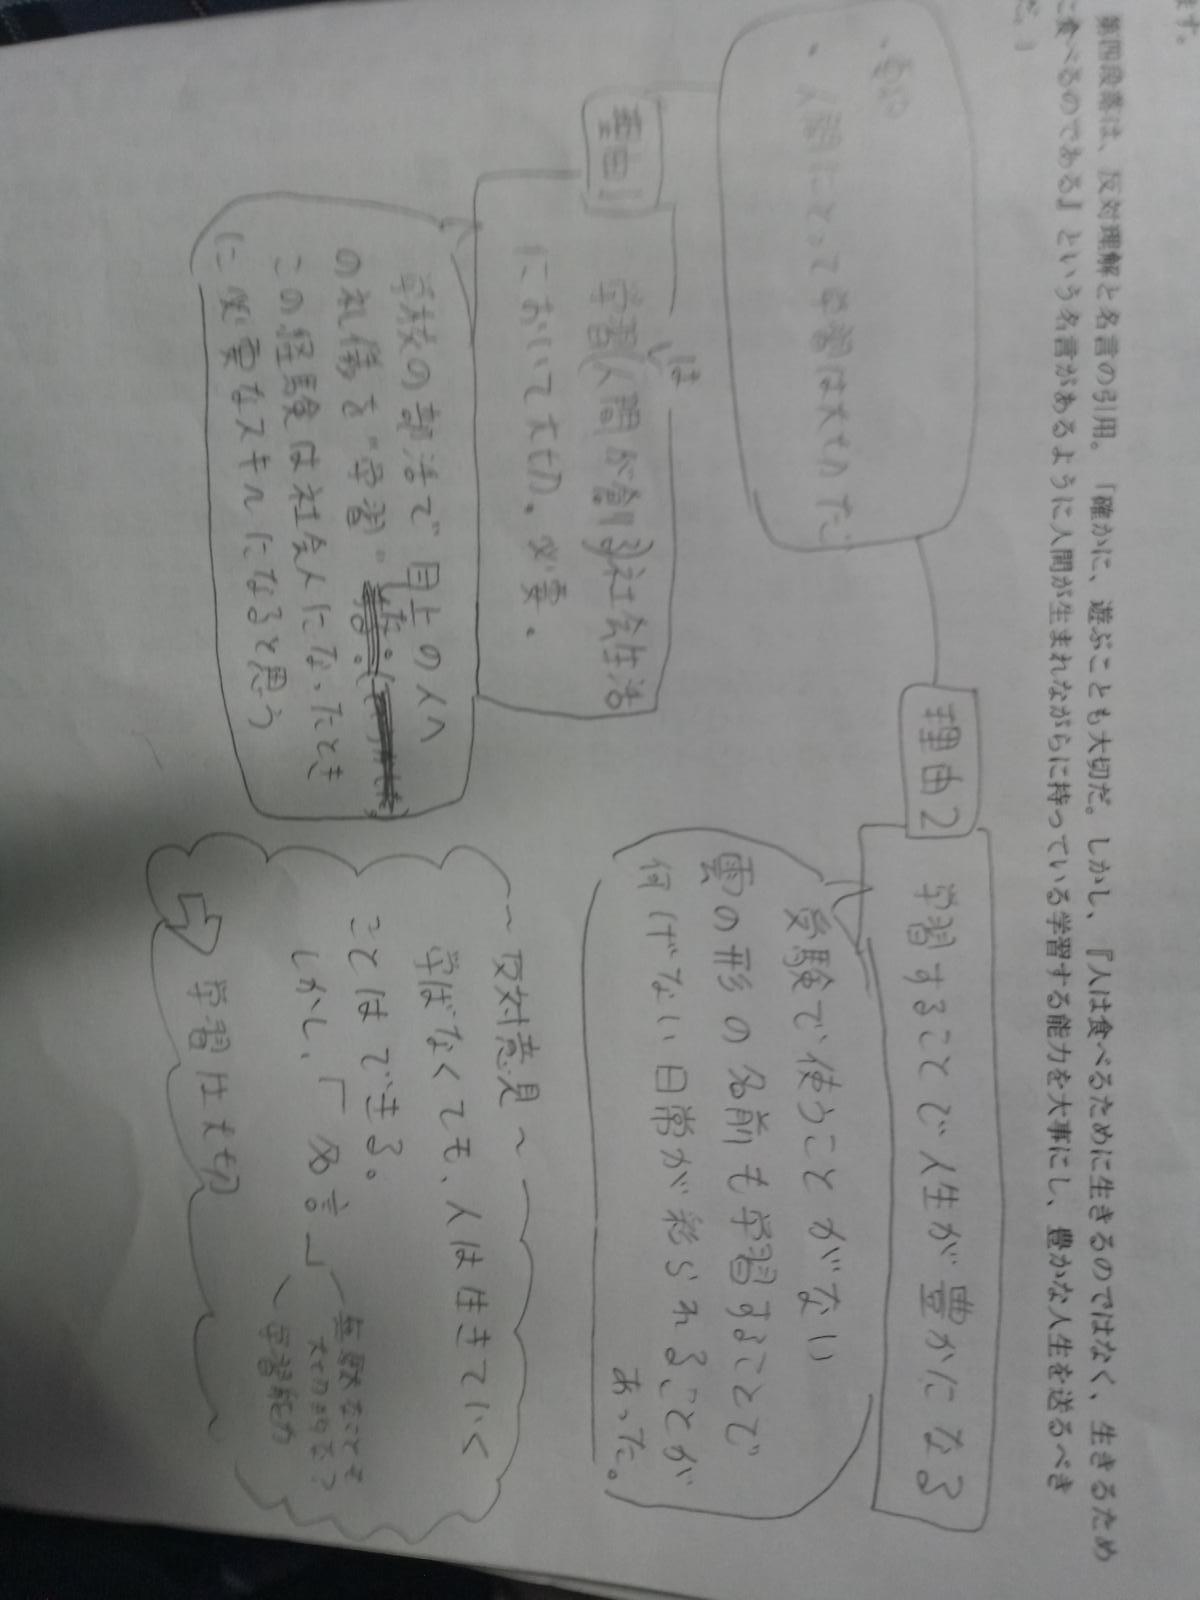 ます。
第四段落は、反対理解と名言の引用。「確かに、遊ぶことも大切だ。しかし、『人は食べるために生きるのではなく、生きるため
に食べるのである』という名言があるように人間が生まれながらに持っている学習する能力を大事にし、豊かな人生を送るべき
だ。」
・人間にとって学習は大切だ
理由1
学習は(人間が創る)社会生活
において大切。必要。
学校の部活で目上の人へ
の礼儀を"学習"
この経験は社会人になったとき
に必要なスキルになると思う
理由2
学習することで人生が豊かになる
受験で使うことがない
雲の形の名前も学習することで
何げない日常が彩られることが
あった。
〜反対意見〜
学ばなくても、人は生きていく
ことはできる。
しかし、「名言」
無駄なことも
大切的な?
学習能力
⇨ 学習は大切